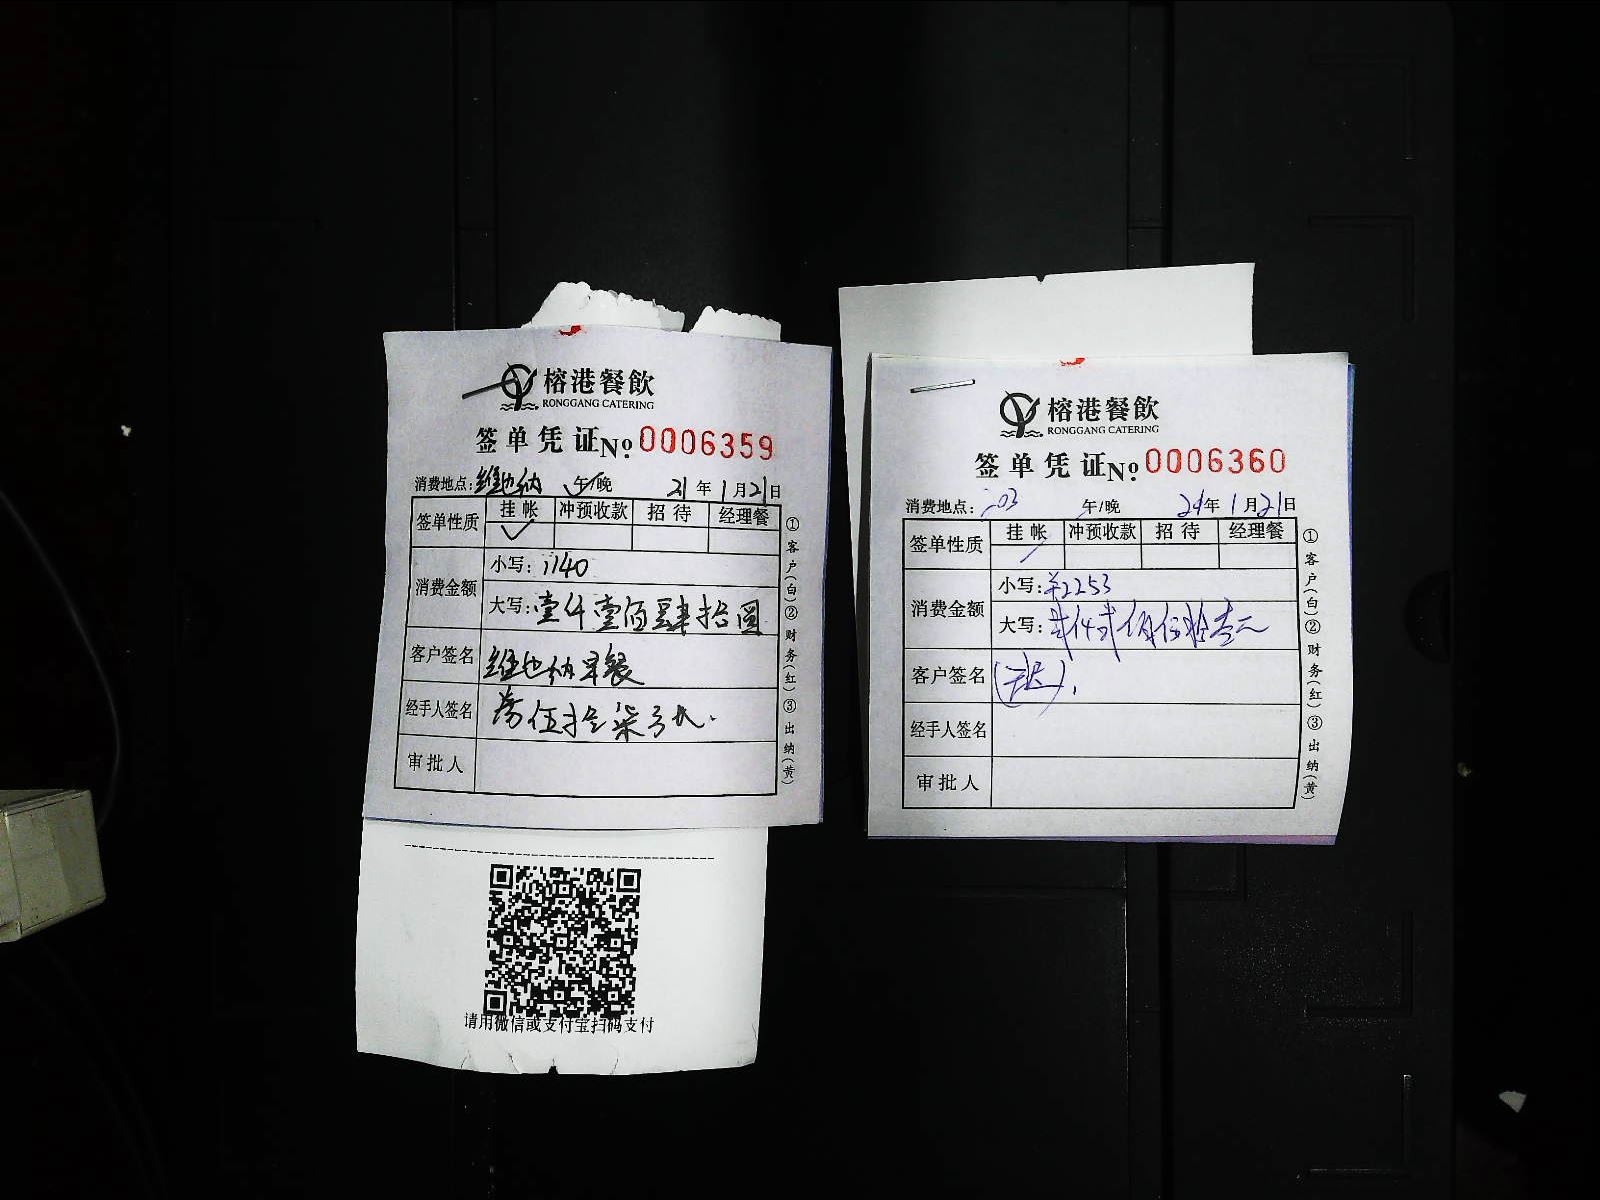 榕港餐飲
RONGGANG CATERING
签单凭证No: 0006359
消费地点: 维也纳 午/晚 21年1月21日
签单性质 挂帐 冲预收款 招待 经理餐
消费金额 小写: 1140
大写: 壹仟壹佰肆拾圆
客户签名 维也纳早餐
经手人签名 伍拾柒
审批人
①客户(白)②财务(红)③出纳(黄)
请用微信或支付宝扫码支付
榕港餐飲
RONGGANG CATERING
签单凭证No: 0006360
消费地点: 203 午/晚 21年1月21日
签单性质 挂帐 冲预收款 招待 经理餐
消费金额 小写: ¥2253
大写: 贰仟贰佰伍拾叁元
客户签名
经手人签名
审批人
①客户(白)②财务(红)③出纳(黄)